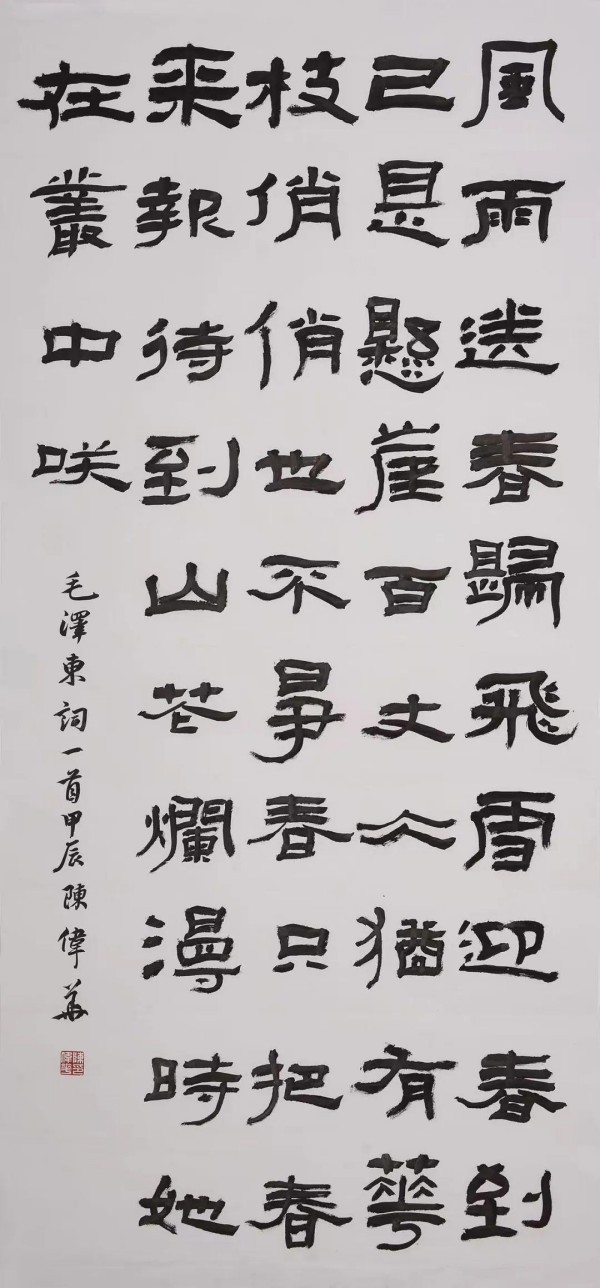 風雨送春歸飛雪迎春到
已是懸崖百丈仌猶有華
枝俏俏也不爭春只把春
来報待到山花爛漫時她
在叢中咲
毛澤東詞一首甲辰陳偉華